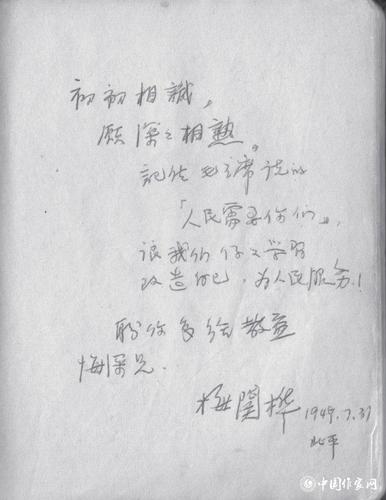 初初相識，
願深々相熟。
記住毛主席说的
「人民需要你們」，
讓我們好々學習
改造自己，为人民服务！
盼你多给教益
悔深兄．
梅 桦 1949.7.31
北平
中国作家网